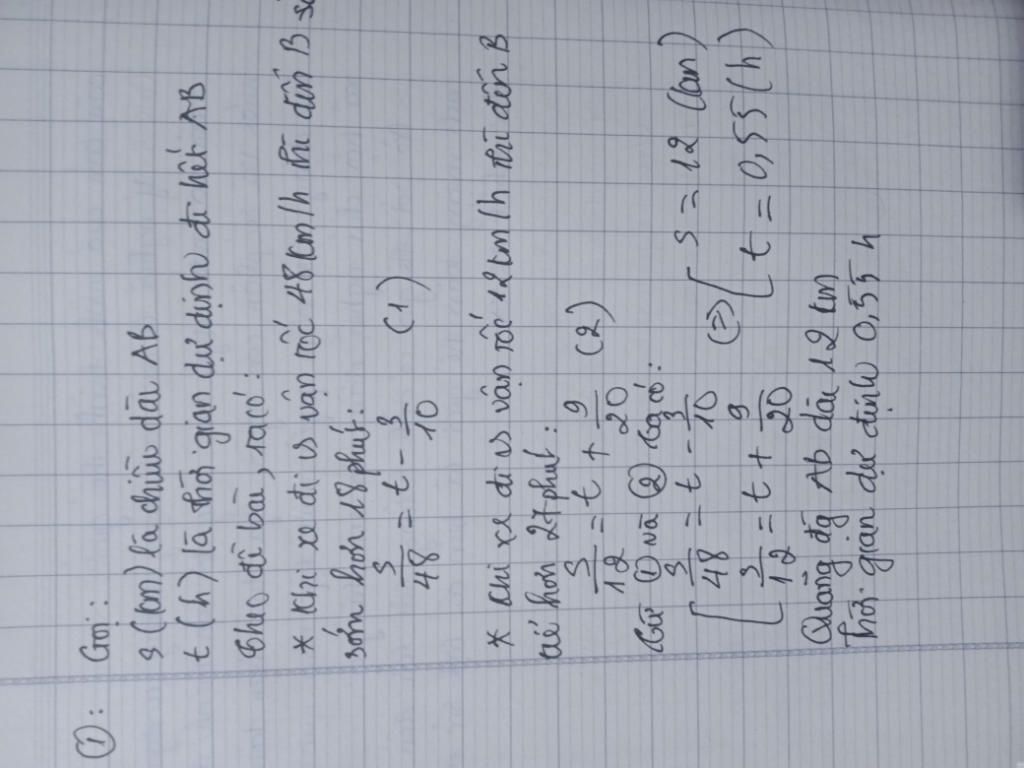 ①: Gọi:
s (km) là chiều dài AB
t (h) là thời gian dự định đi hết AB
Theo đề bài, ta có:
* Khi xe đi vs vận tốc 48km/h thì đến B
sớm hơn 18 phút:
s/48 = t - 3/10 (1)
* Khi xe đi vs vận tốc 12km/h thì đến B
trễ hơn 27 phút:
s/12 = t + 9/20 (2)
Từ ① và ② ta có:
[ s/48 = t - 3/10 (=) [ s = 12 (km)
[ s/12 = t + 9/20 [ t = 0,55 (h)
Quãng đg Ab dài 12 km
Thời gian dự định 0,55 h